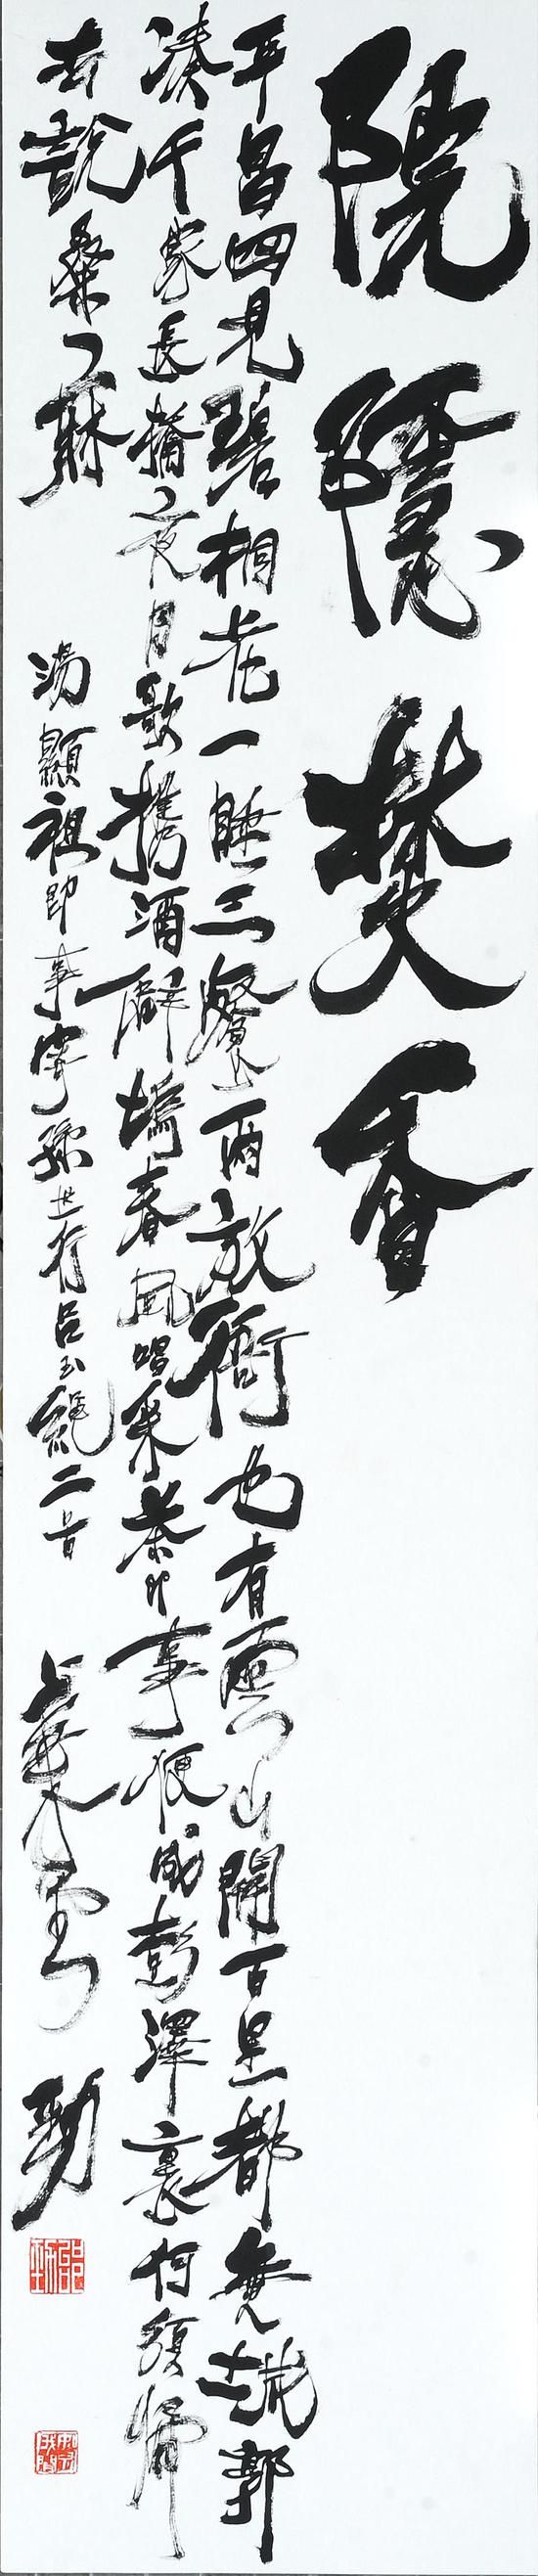 院隱焚香
平昌四見碧桐花一睡三餐兩放衙也有雲山開百里都無城郭
湊千家長橋夜月歌攜酒僻塢春風唱采茶即事便成彭澤裏何須歸
去說桑麻 湯顯祖即事寄孫世行呂玉繩二首 勁